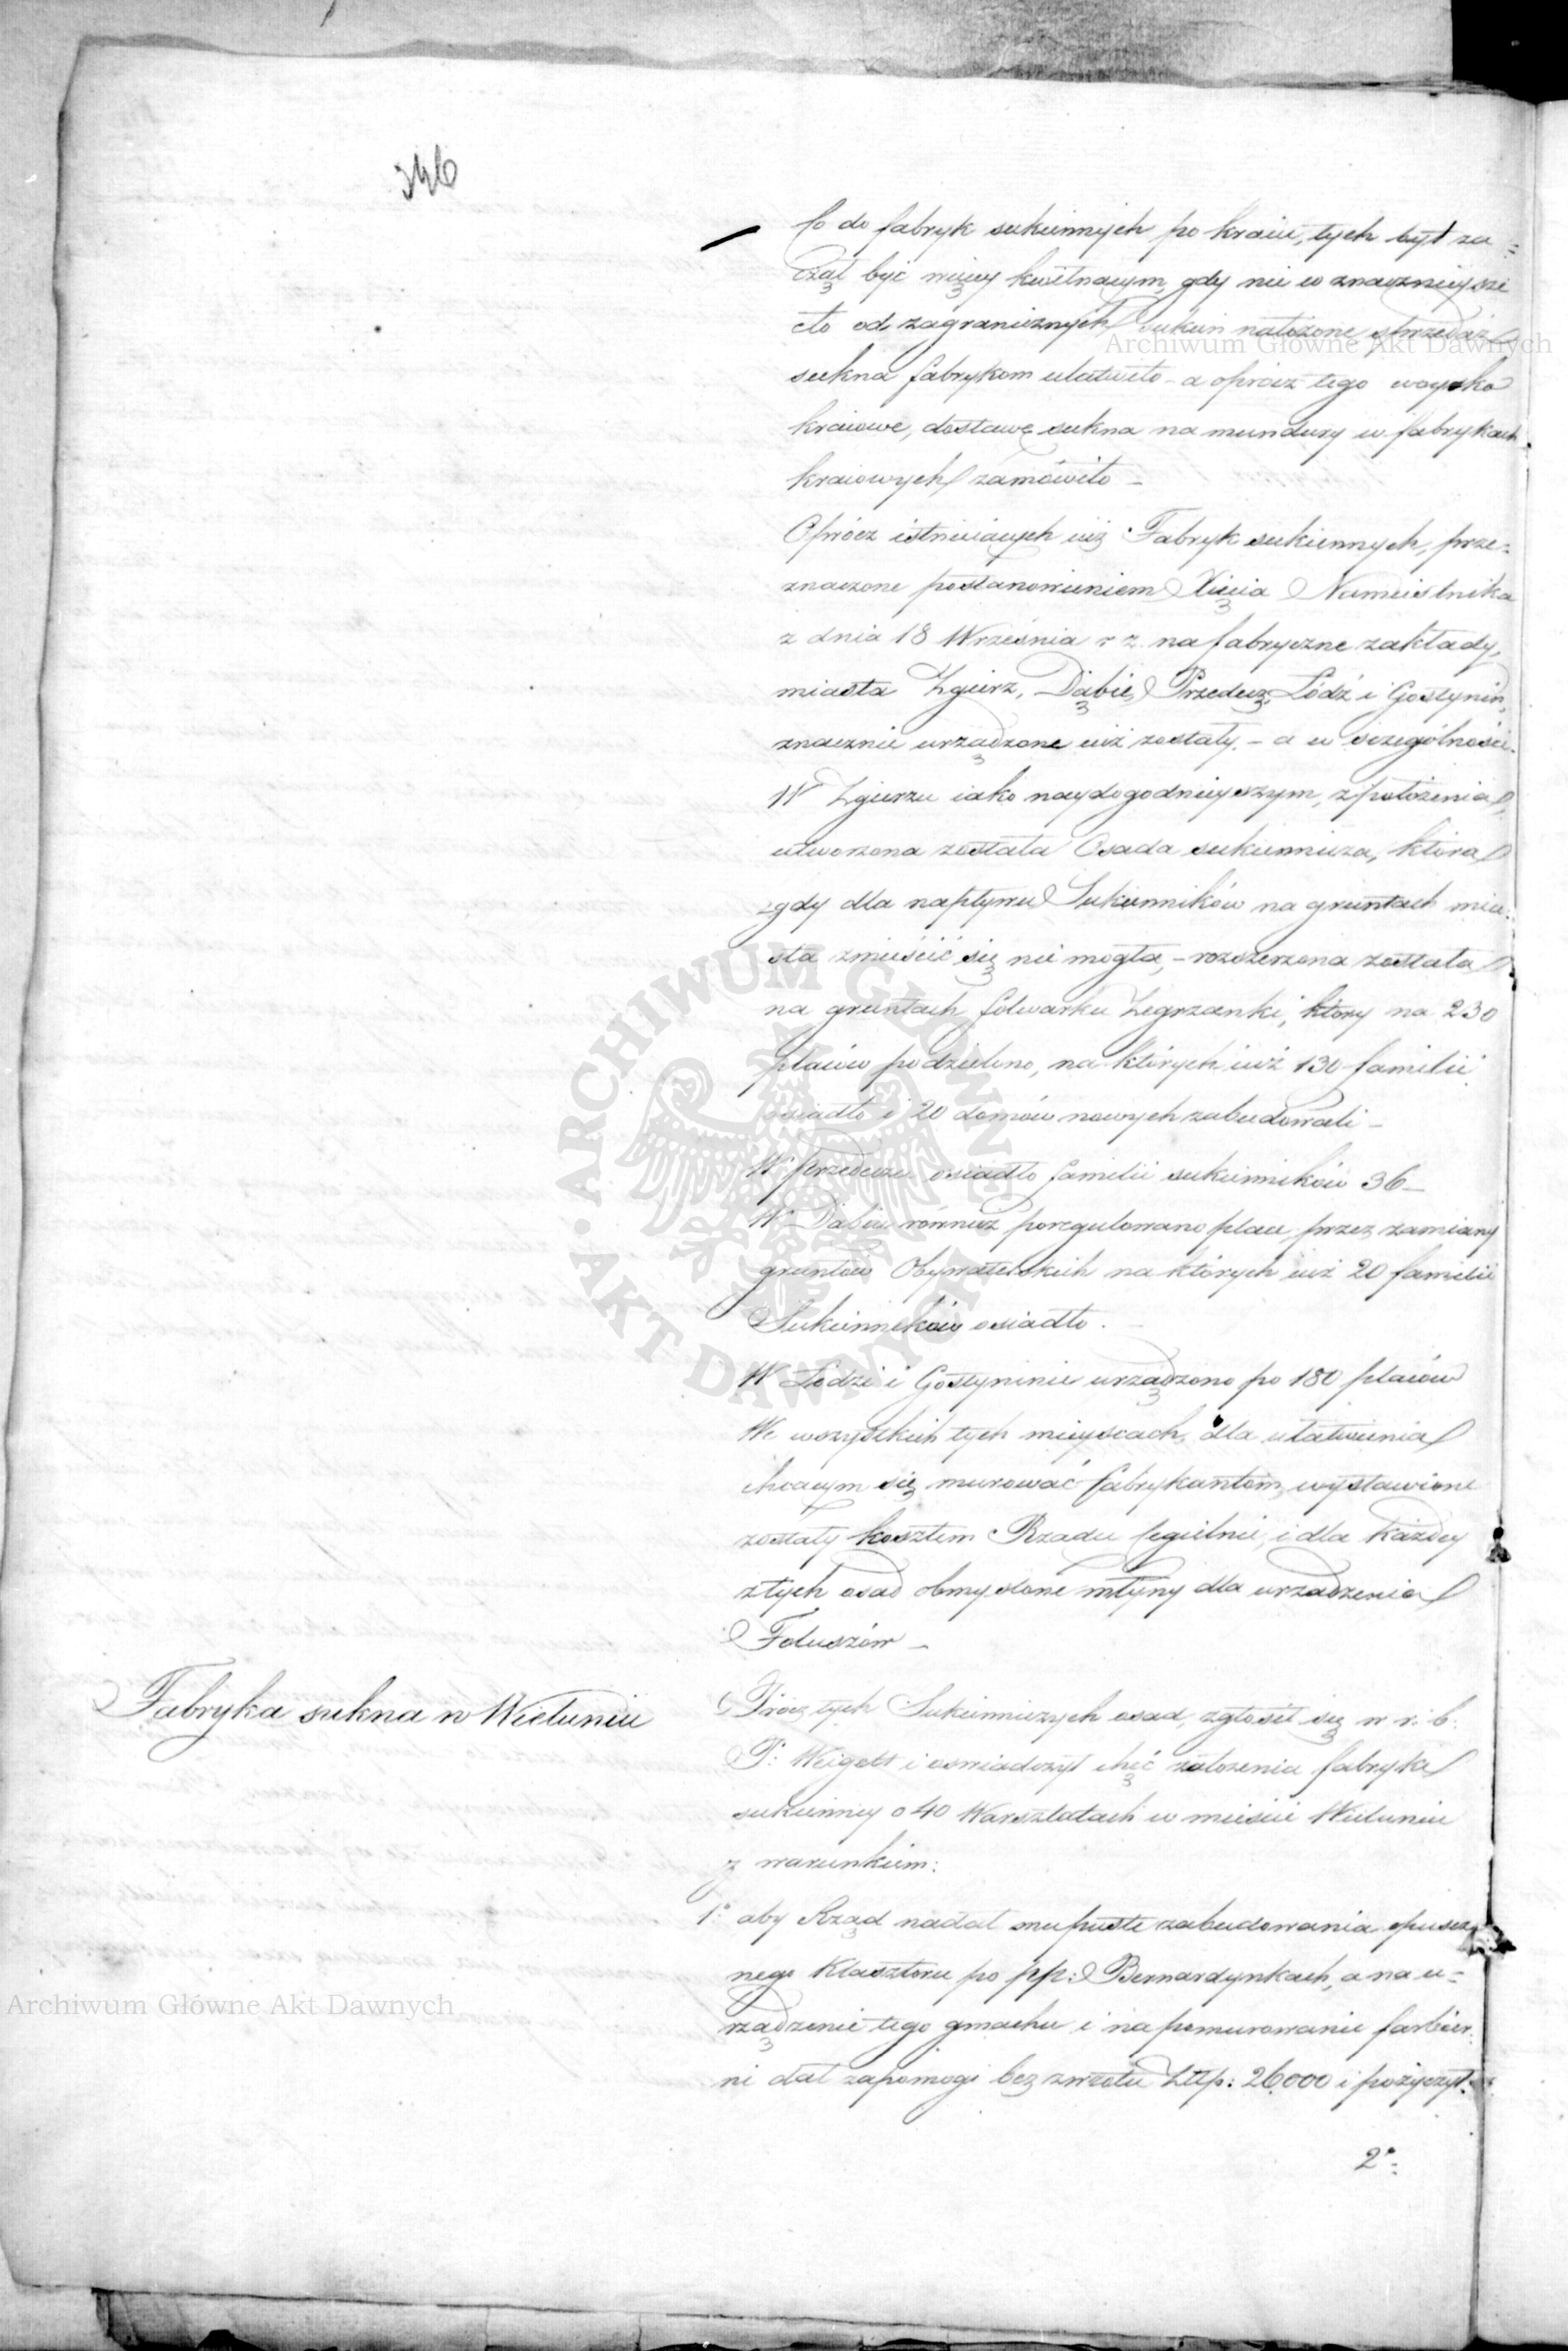 346
Co do fabryk sukiennych po kraiu, tych był za=
czął być mniey kwitnącym, gdy nie co znacznieysze
cło od zagranicznych sukien nałożone sprzedaż
sukna fabrykom ułatwiło - a oprócz tego woysko
kraiowe, dostawę sukna na mundury w fabrykach
kraiowych zamówiło -
Oprócz istnieiących iuż Fabryk sukiennych, prze=
znaczone postanowieniem Xięcia Namiestnika
z dnia 18 Września r z. na fabryczne zakłady,
miasta Zgierz, Dąbie, Przedecz, Łódź i Gostynin,
znacznie urządzone iuż zostały. - a w szczególności.
W Zgierzu iako naydogodnieyszym, z położenia,
utworzona została Osada sukiennicza, która
gdy dla napływu Sukienników na gruntach mia=
sta zmieścić się nie mogła, - rozszerzona została
na gruntach folwarku Zegrzanki, który na 230
placów podzielono, na których iuż 130 familii
osiadło i 20 domów nowych zabudowali -
W Przedeczu osiadło familii sukienników 36 -
W Dąbiu również poregulowano place przez zamiany
gruntów Obywatelskich na których iuż 20 familii
Sukienników osiadło. -
W Łodzi i Gostyninie urządzono po 180 placów
We wszystkich tych mieyscach, dla ułatwienia
chcącym się murować fabrykantom, wystawione
zostały kosztem Rządu Cegielnie, i dla każdey
z tych osad obmyślone młyny dla urządzenia
Foluszów -
Fabryka sukna w Wieluniu
Prócz tych Sukienniczych osad, zgłosił się w r. b.
P. Weigelt i oświadczył chęć założenia fabryki
sukienney o 40 Warsztatach w mieście Wieluniu
z warunkiem:
1° aby Rząd nadał mu puste zabudowania opuszczo
nego Klasztoru po pp: Bernardynkach, a na u=
rządzenie tego gmachu i na pomurowanie farbier
ni dał zapomogi bez zwrotu Złtp: 26000 i pożyczył.
2°=
Archiwum Główne Akt Dawnych
Archiwum Główne Akt Dawnych
· ARCHIWUM GŁÓWNE · AKT DAWNYCH